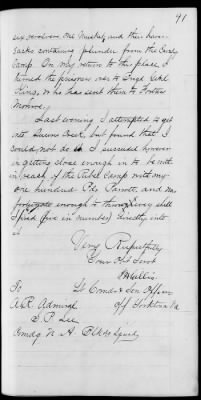 91
six revolvers one Musket, and their haver-
sacks containing plunder from the Curdy
Camp. On my return to the place I
turned the prisoners over to Brige Genl
King, who has sent them to Fortress
Monroe.
Last evening I attempted to get
into Queens Creek, but found that I
could not do it. I succeeded however
in getting close enough in to be with
in reach of the Rebel Camp with my
one hundred Pdr Parrott, and was
fortunate enough to throw every shell
I fired (five in number) directly into
it.
Very Respectfully
Your Obt Servt
Gillis
Lt Comdr & Sen Officer
off Yorktown Va
To
A. R. Admiral
S. P. Lee
Comdg N. A. Blk'dg Squad.